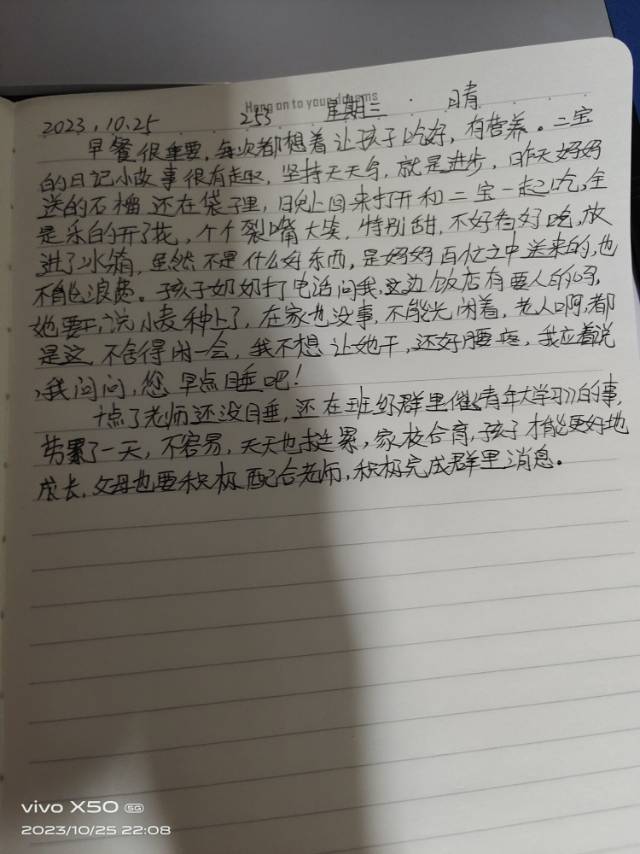 Hang on to your dreams
2023.10.25 253 星期三 · 晴
早餐很重要,每次都想着让孩子吃好,有营养。二宝
的日记小故事很有趣,坚持天天写,就是进步,昨天妈妈
送的石榴还在袋子里,晚上回来打开和二宝一起吃,全
是乐的开了花,个个裂嘴大笑,特别甜,不好看好吃,放
进了冰箱,虽然不是什么好东西,是妈妈百忙之中送来的,也
不能浪费。孩子奶奶打电话问我,这边饭店有要人的吗,
她要干,说小麦种上了,在家也没事,不能光闲着,老人啊,都
是这,不舍得闲一会,我不想让她干,还好腰疼,我应着说
,我问问,您早点睡吧!
十点了老师还没睡,还在班级群里催《青年大学习》的事,
劳累了一天,不容易,天天也挺累,家校合育,孩子才能更好地
成长,父母也要积极配合老师,积极完成群里消息。
vivo X50 5G
2023/10/25 22:08